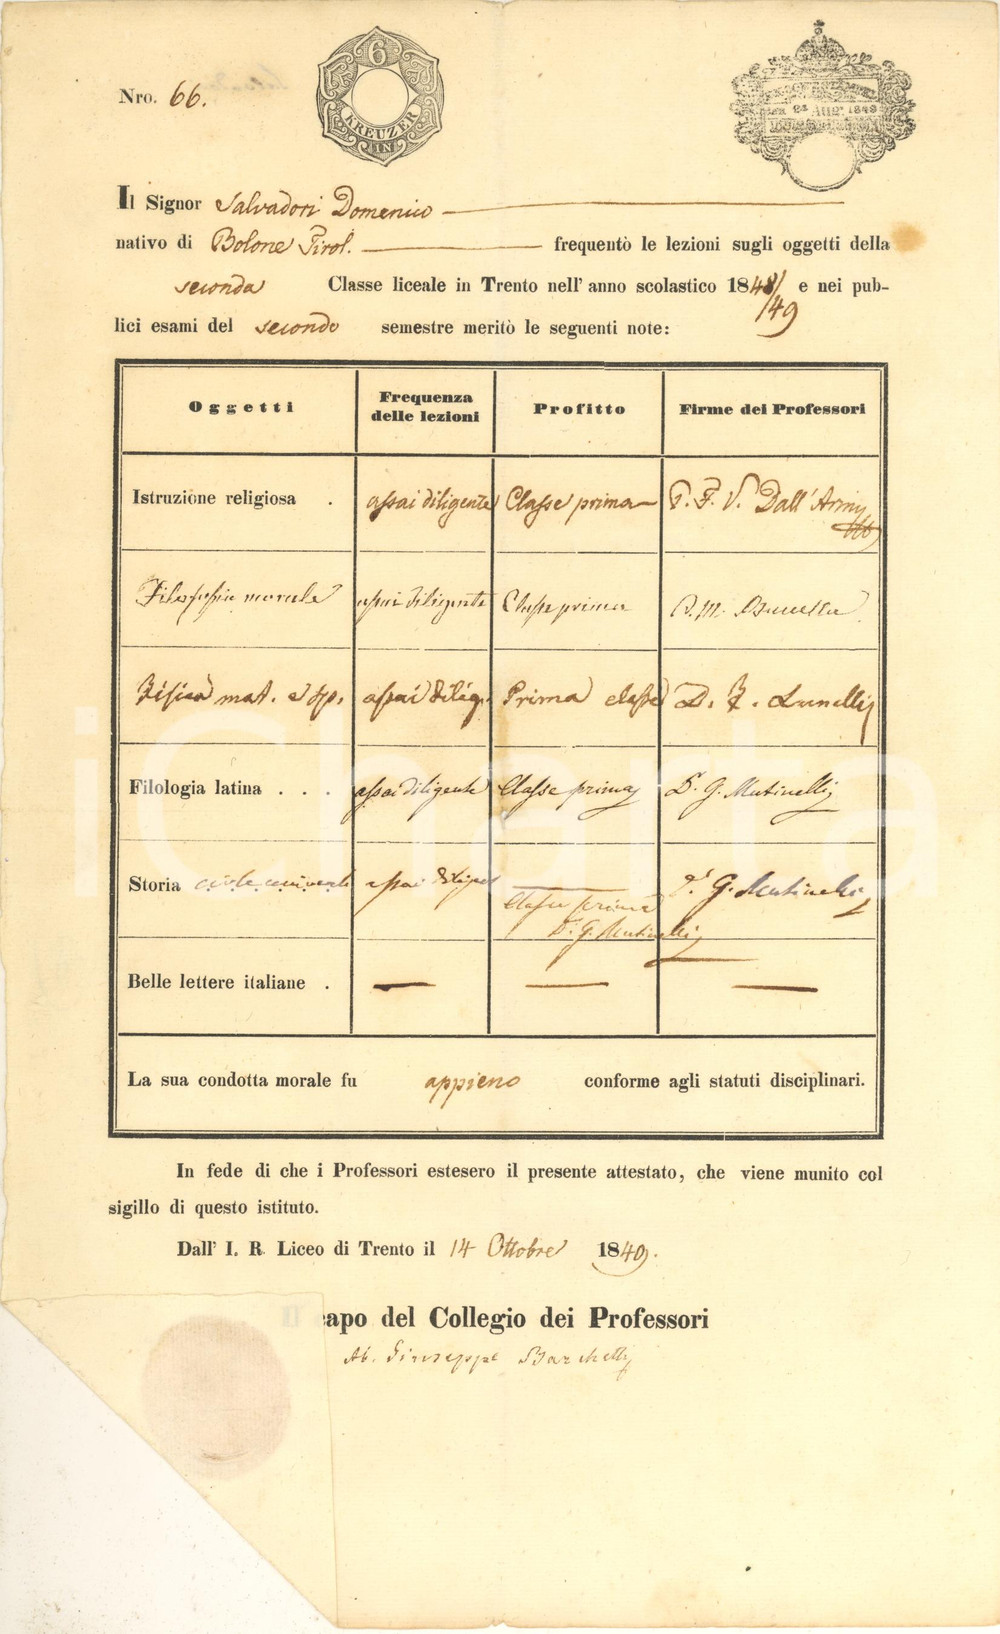 Nro. 66.
6
KREUZER
IN
Il Signor Salvadori Domenico
nativo di Bolone Tirol. frequentò le lezioni sugli oggetti della
seconda Classe liceale in Trento nell' anno scolastico 1848/49 e nei pub-
lici esami del secondo semestre meritò le seguenti note:
Oggetti Frequenza delle lezioni Profitto Firme dei Professori
Istruzione religiosa . assai diligente Classe prima P. F. V. Dall' Armi
Filosofia morale assai diligente Classe prima
Fisica mat. e sp. assai dilig. Prima classe D. F. Lunelli
Filologia latina . . . assai diligente Classe prima Dr. G. Mutinelli
Storia civile universale assai diligente Classe prima Dr. G. Mutinelli
Dr. G. Mutinelli
Belle lettere italiane .
La sua condotta morale fu appieno conforme agli statuti disciplinari.
In fede di che i Professori estesero il presente attestato, che viene munito col
sigillo di questo istituto.
Dall' I. R. Liceo di Trento il 14 Ottobre 1849.
Il capo del Collegio dei Professori
Ab. Giuseppe
iCharta